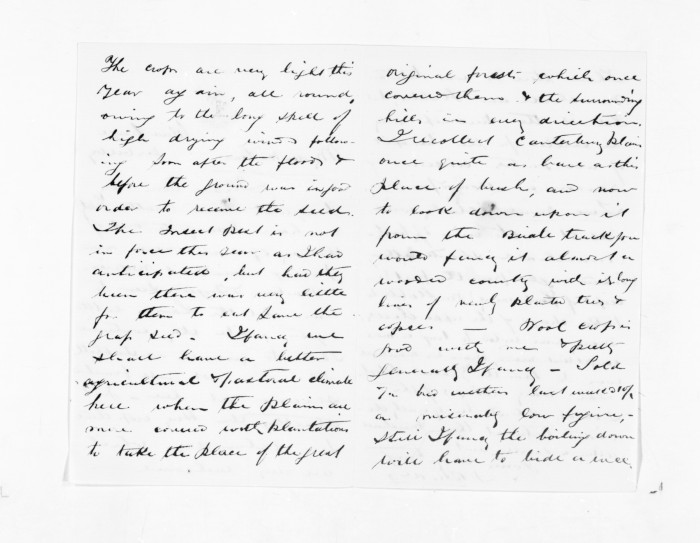 The crops are very light this
year again, all round,
owing to the long spell of
high drying winds follow-
ing soon after the floods &
before the ground was in good
order to receive the seed.
The Insect Pest is not
in force this year as I had
anticipated, but had they
been there was very little
for them to eat save the
grass seed. I fancy we
shall have a better
agricultural & Pastoral climate
here when the plains are
more covered with plantations
to take the place of the great
original forests which once
covered them & the surrounding
hills in every direction.
I recollect Canterbury Plains
once quite as bare as this
place of bush, and now
to look down upon it
from the Bridle track you
would fancy it almost a
wooded country with its long
lines of newly planted trees &
copses — Wool crop is
good with me & pretty
generally I fancy — Sold
last
a miserably low figure, -
Still I fancy the boiling down
will have to bide a wee.